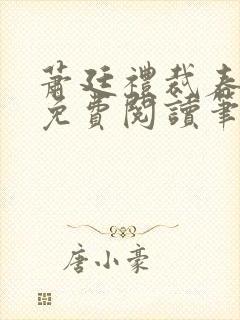 蕭廷禮裁春
免費閱讀筆
唐小豪